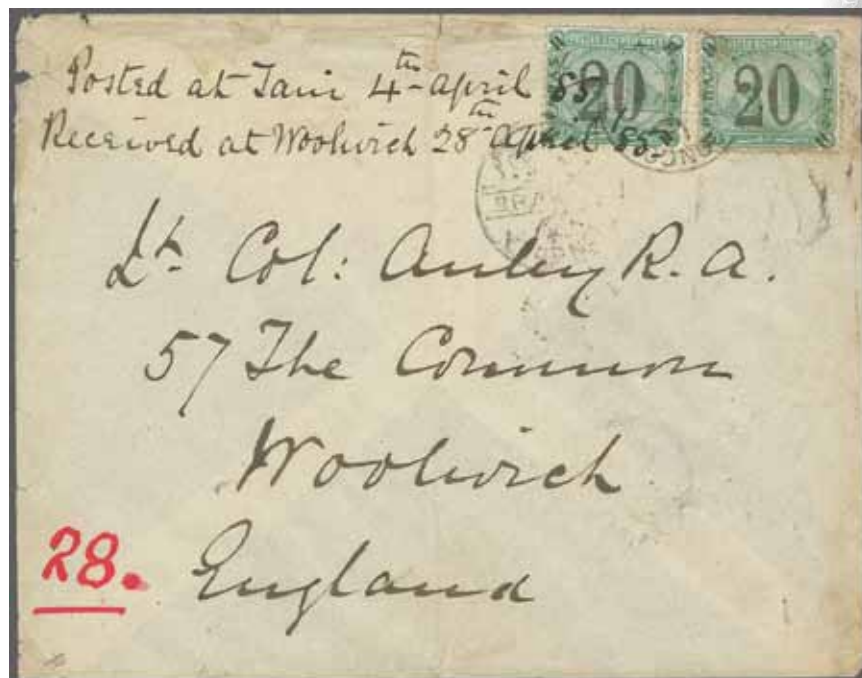 Posted at Tani 4th april 85
Received at Woolwich 28th april 85
20
20
Lt. Col: Anley R.A.
57 The Common
Woolwich
England
28.